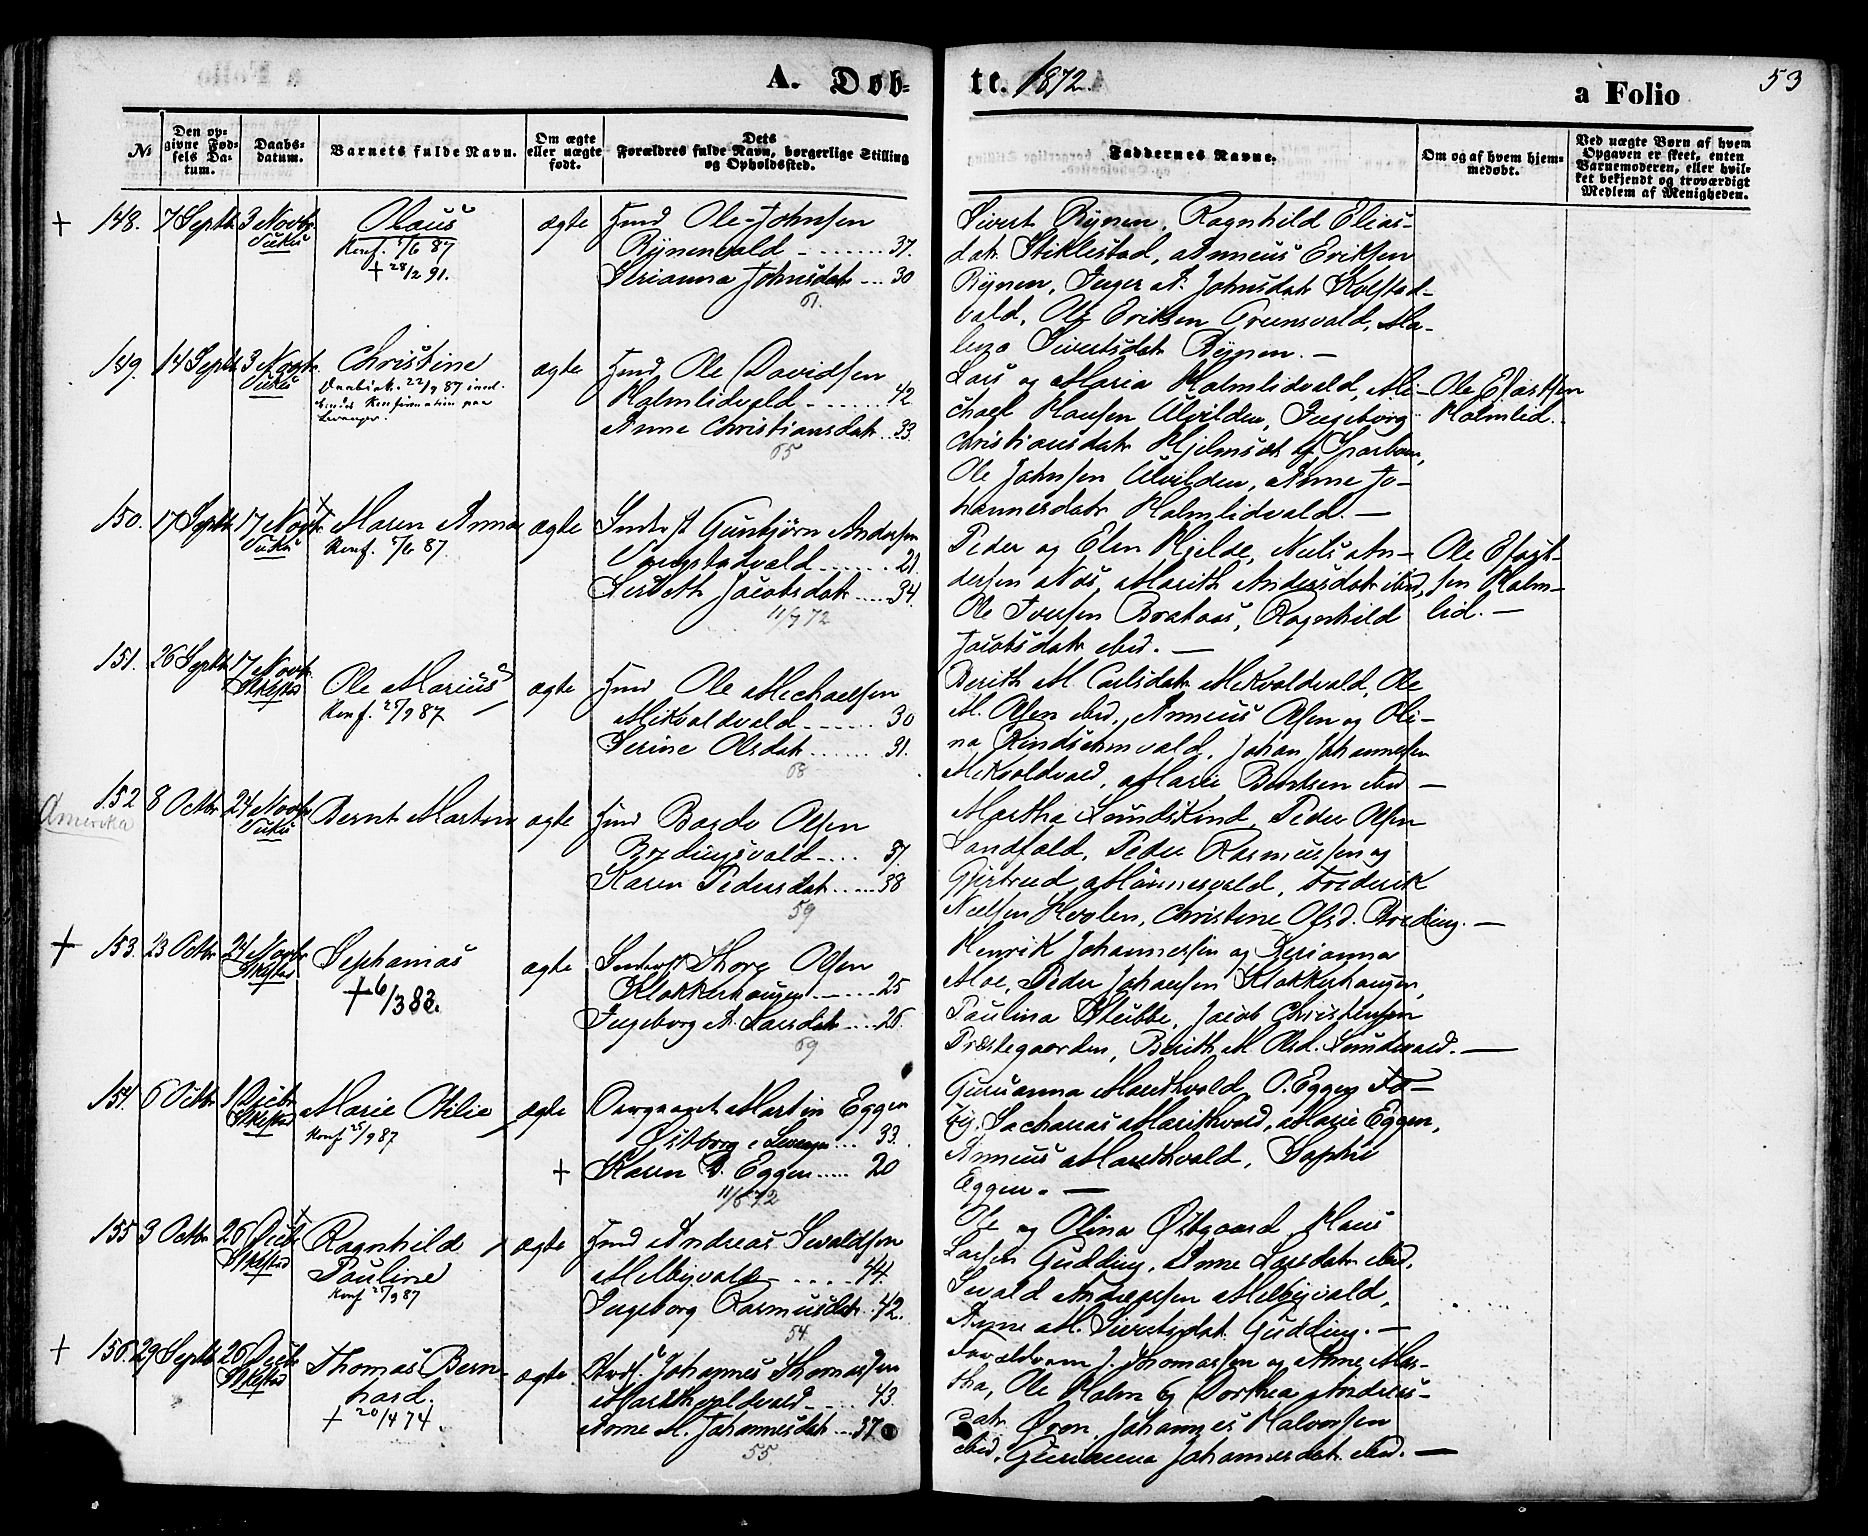 A. Døb-
te. 1872.
a Folio
53
No
Den op-
givne Fød-
sels Da-
tum.
Daabs-
datum.
Barnets fulde Navn.
Om ægte
eller uægte
født.
Dets
Forældres fulde Navn, borgerlige Stilling
og Opholdssted.
Faddernes Navne.
Om og af hvem hjem-
medøbt.
Ved uægte Børn af hvem
Opgaven er skeet, enten
Barnemoderen, eller hvil-
ket bekjendt og troværdigt
Medlem af Menigheden.
+ 148. 7 Septb. 3 Novbr.
Vuku
Olaus
Konf. 5/6 87
+ 28/2 91.
ægte
Hmd Ole Johnsen
Rynenvald 37.
Serianna Johnsdatr 30
61.
Sivert Rynen, Ragnhild Elias-
datr Stiklestad, Anneus Eriksen
Rynen, Inger A. Johnsdatr Kolstad-
vald, Ole Eriksen Grunsvald, Ma-
Sivertsdatr Rynen. —
149. 14 Septb. 3 Novbr.
Vuku
Christine
22/9 87
Konfirmation paa
Levanger.
ægte
Hmd Ole Davidsen
Holmlidvald 42
Anne Christiansdatr 33.
65
Lars og Maria Holmlidvald, Mi-
chael Hansen Ulvilden, Ingeborg
Christiansdatr Hjelmset af Sparbuen,
Ole Johnsen Ulvilden, Anne Jo-
hannesdatr Holmlidvald. —
Ole
Holmlid.
150. 17 Septb. 17 Novbr.
Vuku
+
Maren Anna
Konf. 5/6 87.
ægte
Inderst Gunbjørn Andersen
21.
Lisbeth Jacobsdatr 34.
11/7 72
Peder og Elen Hjelde, Niels An-
dersen Næs, Marith Andersdatr ibid,
Ole Iversen Brataas, Ragnhild
Jacobsdatr ibid. —
Ole
sen Holm-
lid. —
151. 26 Septb. 17 Novbr.
Stiklestad
Ole Marius
Konf. 25/9 87
ægte
Hmd Ole Michaelsen
Mikvoldvald 30
Serine Olsdatr 31.
68
Berith M. Carlsdatr Mikvoldvald, Ole
M. Olsen ibid, Anneus Olsen og Oli-
na Rindsemvald, Johan Johannessen
Mikvoldvald, Marie Bentsen ibid —
Amerika
152 8 Octbr 24 Novbr
Vuku
Bernt Martin
ægte
Hmd Bardo Olsen
Bredingsvald 37.
Karen Pedersdatr 38
59
Martha Sundskind, Peder Olsen
Landfald, Peder Rasmussen og
Gjertrud Mønnesvald, Frederik
Nielsen Holen, Christine Olsd. Breding. —
+ 153. 23 Octbr 24 Novbr
Stiklestad
Sephanias
+ 6/3 83.
ægte
Inderst Thore Olsen
Klokkerhaugen 25
Ingeborg A. Larsdatr 26.
69
Henrik Johannessen og Serianna
Moe, Peder Johansen Klokkerhaugen,
Paulina Stubbe, Jacob Christensen
Præstegaarden, Berith M. Olsd. Sundevald. —
154. 6 Octbr 1 Decbr
Stiklestad
Marie Otilie
Konf 25/9 87
ægte
Martin Eggen
Østborg i Levanger 33.
+ Karen B. Eggen 20
11/6 72
Guruanna Marithvald, O. Eggen
Sacharias Marithvald, Marie Eggen,
Anneus Marithvald, Sophie
Eggen. —
155 3 Octbr 26 Decbr
Stiklestad
Ragnhild
Pauline
Konf 25/9 87
ægte
Hmd Andreas Sevaldsen
Melbyvald 44.
Ingeborg Rasmusdatr 42.
54
Ole og Olina Østgaard, Hans
Larsen Gudding, Anne Larsdatr ibid,
Sevald Andreassen Melbyvald,
Anne M. Sivertsdatr Gudding. —
+ 156. 29 Septb. 26 Decbr
Stiklestad
Thomas Bern-
hard.
+ 20/4 74.
ægte
Johannes Thomassen
Marithvoldvald 43.
Anne M. Johannesdatr 37
55.
Forældrene J. Thomassen og Anne Mar-
tha, Ole Holm og Dorthea Anders-
datr Øren, Johannes Halvorsen
ibid, Gurianna Johannesdatr ibid. —